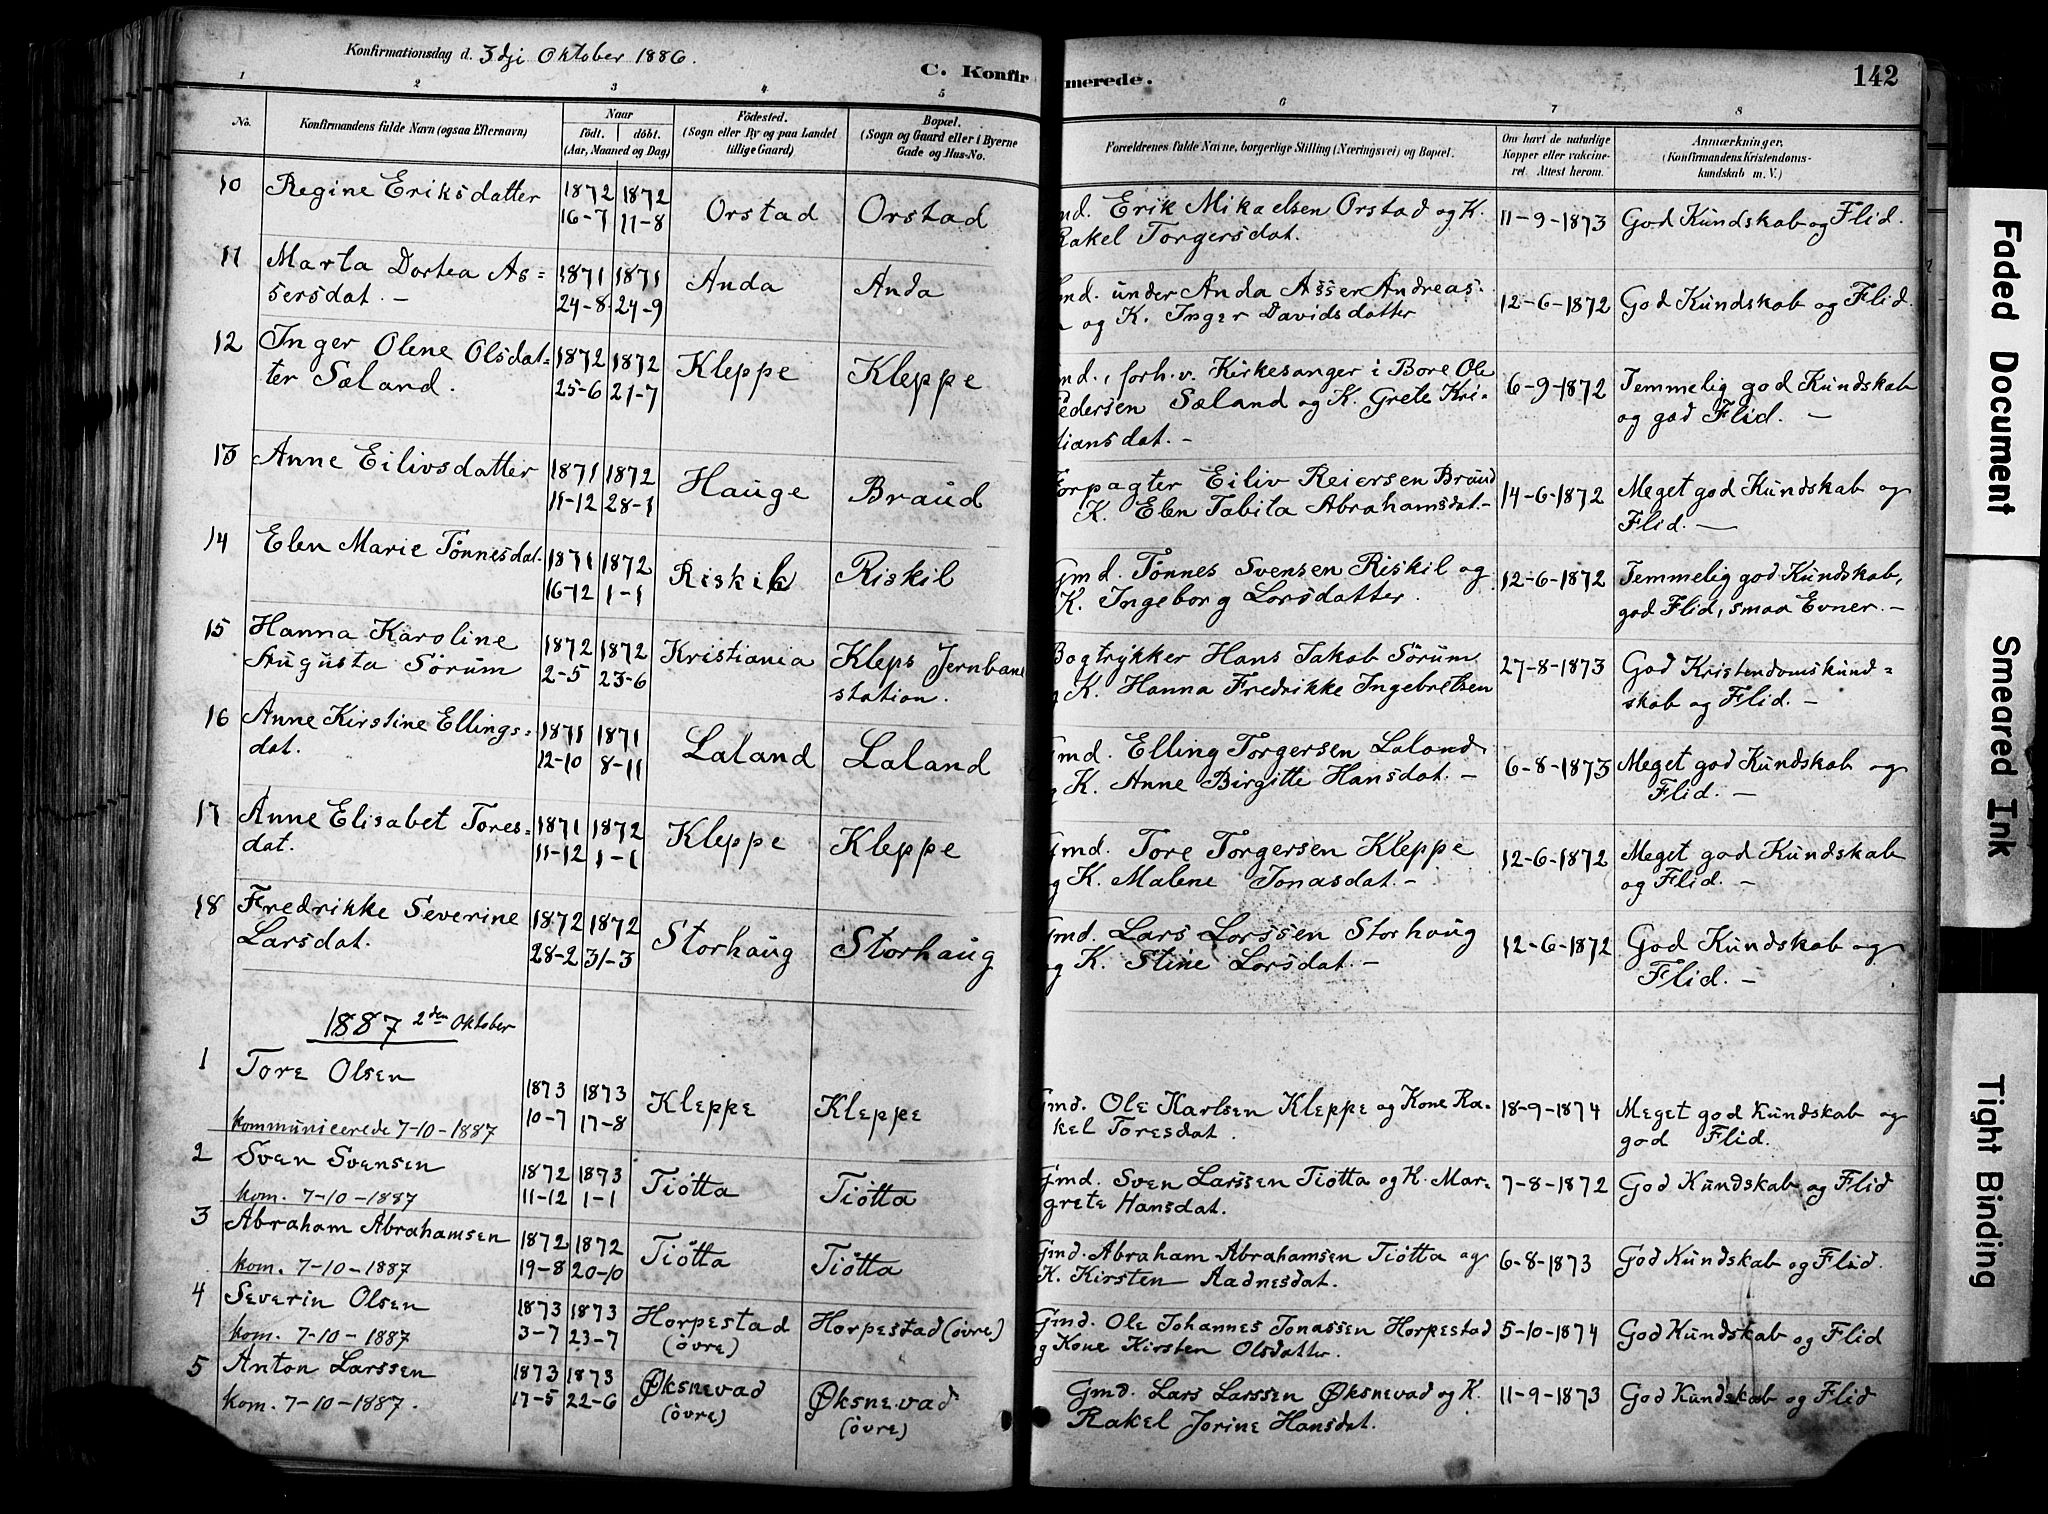 Konfirmationsdag d. 3dji Oktober 1886.
C. Konfir
merede.
142
1 2 3 4 5 6 7 8
No.
Konfirmandens fulde Navn (ogsaa Efternavn)
Naar
födt. döbt.
(Aar, Maaned og Dag)
Födested.
(Sogn eller By og paa Landet
tillige Gaard)
Bopæl.
(Sogn og Gaard eller i Byerne
Gade og Hus-No.
Forældrenes fulde Navne, borgerlige Stilling (Næringsvei) og Bopæl.
Om havt de naturlige
Kopper eller vakcine-
ret. Attest herom.
Anmærkninger.
(Konfirmandens Kristendoms-
kundskab m. V.)
10 Regine Eriksdatter 1872 1872 Orstad Orstad md. Erik Mikaelsen Orstad og K. 11-9-1873 God Kundskab og Flid.
16-7 11-8 Rakel Torgersdat.
11 Marta Dortea As= 1871 1871 Anda Anda md. under Anda Asser Andreas- 12-6-1872 God Kundskab og Flid.
sersdat. - 24-8 24-9 og K. Inger Davidsdatter
12 Inger Olene Olsdat= 1872 1872 Kleppe Kleppe md., forh.v. Kirkesanger i Bore Ole 6-9-1872 Temmelig god Kundskab
ter Sæland. 25-6 21-7 Pedersen Sæland og K. Grete Kri- og god Flid. -
tiansdat. -
13 Anne Eilivsdatter 1871 1872 Hauge Braud Forpagter Eiliv Reiersen Braud 14-6-1872 Meget god Kundskab og
11-12 28-1 K. Elen Tabita Abrahamsdat. - Flid. -
14 Elen Marie Tönnesdat. 1871 1872 Riskil Riskil Gmd. Tönnes Svensen Riskil og 12-6-1872 Temmelig god Kundskab,
16-12 1-1 K. Ingeborg Larsdatter. god Flid, smaa Evner. -
15 Hanna Karoline 1872 1872 Kristiania Kleps Jernbane Bogtrykker Hans Jakob Sörum 27-8-1873 God Kristendomskund=
Augusta Sörum 2-5 23-6 station. K. Hanna Fredrikke Ingebretsen skab og Flid. -
16 Anne Kirstine Ellings= 1871 1871 Laland Laland Gmd. Elling Torgersen Laland 6-8-1873 Meget god Kundskab og
dat. 12-10 8-11 og K. Anne Birgitte Hansdat. - Flid. -
17 Anne Elisabet Tores= 1871 1872 Kleppe Kleppe Gmd. Tore Torgersen Kleppe 12-6-1872 Meget god Kundskab
dat. 11-12 1-1 og K. Malene Jonasdat. - og Flid. -
18 Fredrikke Severine 1872 1872 Storhaug Storhaug Gmd. Lars Larssen Storhaug 12-6-1872 God Kundskab og
Larsdat. 28-2 31-3 og K. Stine Larsdat. - Flid. -
1887 2den Oktober
1 Tore Olsen 1873 1873 Kleppe Kleppe Gmd. Ole Karlsen Kleppe og Kone Ra- 18-9-1874 Meget god Kundskab og
kommunicerede 7-10-1887 10-7 17-8 kel Toresdat. god Flid.
2 Sven Svensen 1872 1873 Tiötta Tiötta Gmd. Sven Larssen Tiötta og K. Mar- 7-8-1872 God Kundskab og Flid
kom. 7-10-1887 11-12 1-1 grete Hansdat.
3 Abraham Abrahamsen 1872 1872 Tiötta Tiötta Gmd. Abraham Abrahamsen Tiötta og 6-8-1873 God Kundskab og Flid.
kom. 7-10-1887 19-8 20-10 K. Kirsten Aadnesdat.
4 Severin Olsen 1873 1873 Horpestad Horpestad (övre) Gmd. Ole Johannes Jonassen Horpestad 5-10-1874 God Kundskab og Flid
kom. 7-10-1887 3-7 23-7 (övre) og Kone Kirsten Olsdatter.
5 Anton Larssen 1873 1873 Øksnevad Øksnevad Gmd. Lars Larssen Øksnevad og K. 11-9-1873 God Kundskab og Flid
kom. 7-10-1887. 17-5 22-6 (övre) (övre) Rakel Jorine Hansdat.
Faded Document
Smeared Ink
Tight Binding